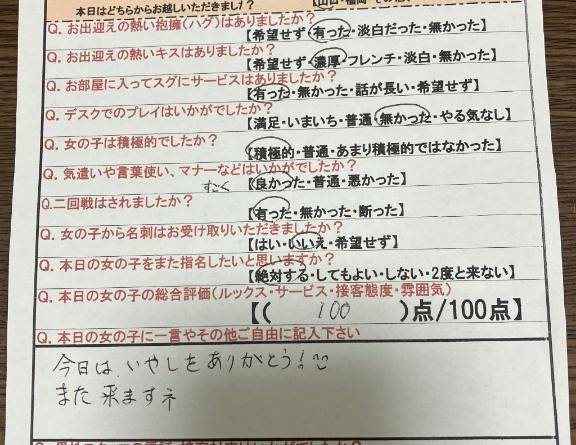 本日はどちらからお越しいただきまし？
Q. お出迎えの熱い抱擁(ハグ)はありましたか？
【希望せず・有った・淡白だった・無かった】
Q. お出迎えの熱いキスはありましたか？
【希望せず・濃厚・フレンチ・淡白・無かった】
Q. お部屋に入ってスグにサービスはありましたか？
【有った・無かった・話が長い・希望せず】
Q. デスクでのプレイはいかがでしたか？
【満足・いまいち・普通・無かった・やる気なし】
Q. 女の子は積極的でしたか？
【積極的・普通・あまり積極的ではなかった】
Q. 気遣いや言葉使い、マナーなどはいかがでしたか？
すごく【良かった・普通・悪かった】
Q.二回戦はされましたか？
【有った・無かった・断った】
Q. 女の子から名刺はお受け取りいただきましたか？
【はい・いいえ・希望せず】
Q. 本日の女の子をまた指名したいと思いますか？
【絶対する・してもよい・しない・2度と来ない】
Q. 本日の女の子の総合評価(ルックス・サービス・接客態度・雰囲気)
【( 100 )点/100点】
Q. 本日の女の子に一言やその他ご自由に記入下さい
今日は、いやしをありがとう！
また来ますネ